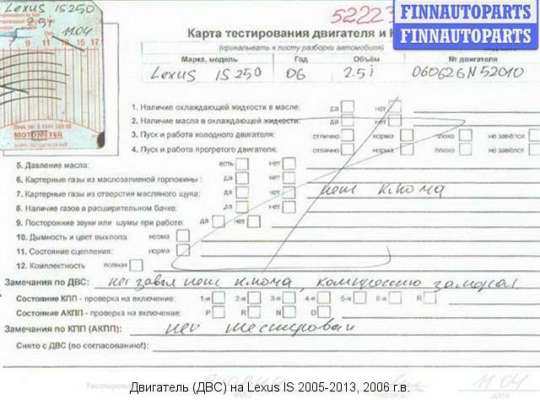 Lexus IS250
11.04
7 9 11 13 15 17
MOTOMETER
5222
FINNAUTOPARTS
FINNAUTOPARTS
FINNAUTOPARTS
Карта тестирования двигателя и К
(прикалывать к листу разборки автомобиля)
Марка, модель Год Объём № двигателя
Lexus IS250 06 2.5i
1. Наличие охлаждающей жидкости в масле: да нет
2. Наличие масла в охлаждающей жидкости: да нет
3. Пуск и работа холодного двигателя: отлично норма плохо не завёлся
4. Пуск и работа прогретого двигателя: отлично норма плохо не завёлся
5. Давление масла: есть нет
6. Картерные газы из маслозаливной горловины: да нет
7. Картерные газы из отверстия масляного щупа: да нет нет ключа
8. Наличие газов в расширительном бачке: да нет
9. Посторонние звуки или шумы при работе: да нет
10. Дымность и цвет выхлопа норма
11. Состояние сцепления: норма
12. Комплектность полная
Замечания по ДВС: не завел нет ключа, компрессию замерял
Состояние КПП - проверка на включение: 1-я 2-я 3-я 4-я 5-я 6-я R
Состояние АКПП - проверка на включение: P R N D
Замечания по КПП (АКПП): не тестирован
Снято с ДВС (по согласованию!):
11.04
Двигатель (ДВС) на Lexus IS 2005-2013, 2006 г.в.